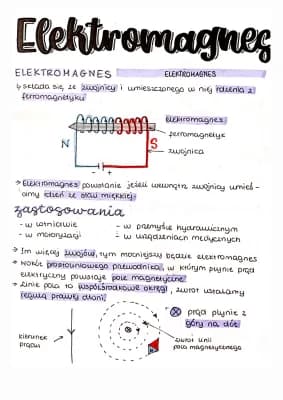 Elektromagnes
ELEKTROMAGNES
ELEKTROMAGNES
↳ składa się ze zwojnicy i umieszczonego w niej rdzenia z
ferromagnetyku
elektromagnes
ferromagnetyk
zwojnica
N
S
- +
→ Elektromagnes powstanie jeżeli wewnątrz zwojnicy umieś-
amy rdzeń ze stali miękkiej
zastosowania
- w lotnictwie
- w motoryzacji
- w przemyśle hydraulicznym
- w urządzeniach medycznych
→ Im więcej zwojów, tym mocniejszy będzie elektromagnes
→ Wokół prostoliniowego przewodnika, w którym płynie prąd
elektryczny powstaje pole magnetyczne.
→ Linie pola to współśrodkowe okręgi, zwrot ustalamy
regułą prawej dłoni.
kierunek
prądu
prąd płynie z
góry na dół
zwrot linii
pola magnetycznego